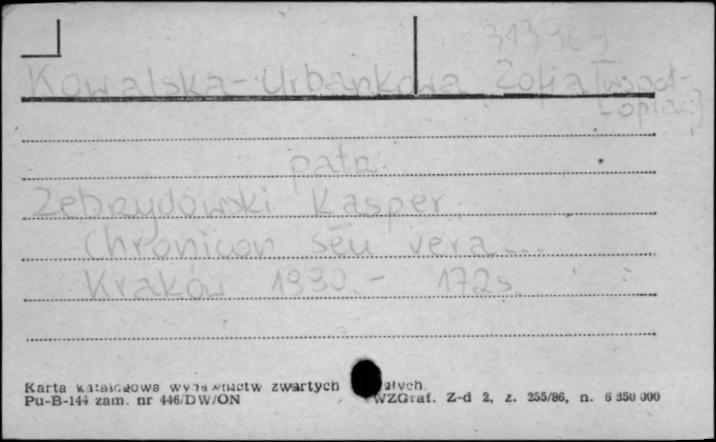 313969
Kowalska-Urbankowa Zofia [współ-
oprac.]
patrz
Zebrzydowski Kasper
Chronicon seu vera...
Kraków 1990.- 172s.
Karta katalogowa wydawnictw zwartych
Pu-B-144 zam. nr 446/DW/ON WZGraf. Z-d 2, z. 255/86, n. 6 350 000